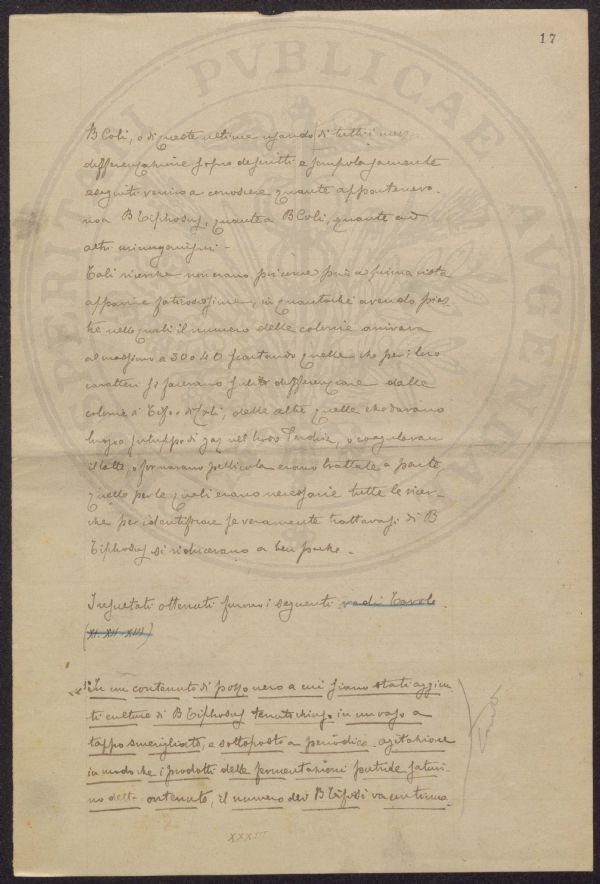 17
B Coli, o di queste ultime usando di tutti i mezzi
differenziazione sopra descritti e scrupolosamente
eseguiti veniva a conoscere quante apparteneva-
no a B Tiphosus, quante a B Coli, quante ad
altri microrganismi -
Tali ricerche non erano poi come può a prima vista
apparire faticosissime, in quantoché avendo pias-
tre nelle quali il numero delle colonie arrivava
al massimo a 30 o 40 scartando quelle che per i loro
caratteri si facevano subito differenziare dalle
colonie di Tifo o di Coli, delle altre quelle che davano
luogo sviluppo di gaz nel brodo, o coagulavano
il latte, o formavano pellicola erano trattate a parte,
quelle per le quali erano necessarie tutte le ricer-
che per identificare se veramente trattavasi di B
Tiphosus si riducevano a ben poche -
I risultati ottenuti furono i seguenti vedi Tavole.
(XI. XII XIII)
1º In un contenuto di pozzo nero a cui siano stati aggiun-
ti culture di B Tiphosus tenuto chiuso in un vaso a
tappo smerigliato, e sottoposto a periodica agitazione
in modo che i prodotti delle fermentazioni putride saturi-
no contenuto, il numero dei B Tifosi va continua-
XXXIII
PERITAT PVBLICAE AGENDA